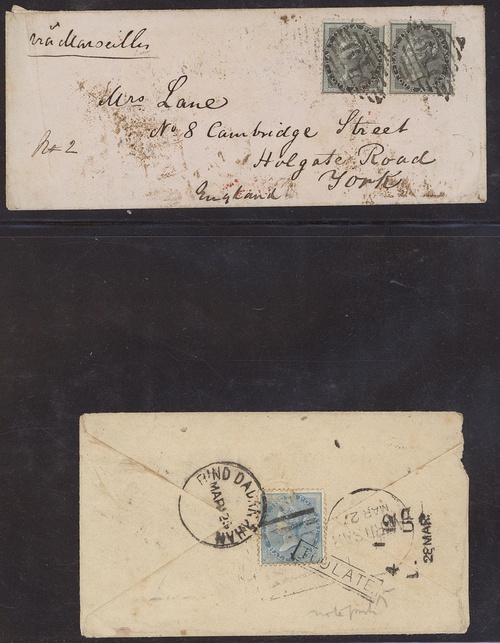 via Marseilles
Mrs Lane
No 8 Cambridge Street
Holgate Road
York
England
PIND DADAN KHAN
MAR 26
TOO LATE
MAR 27
4
12
28 MAR